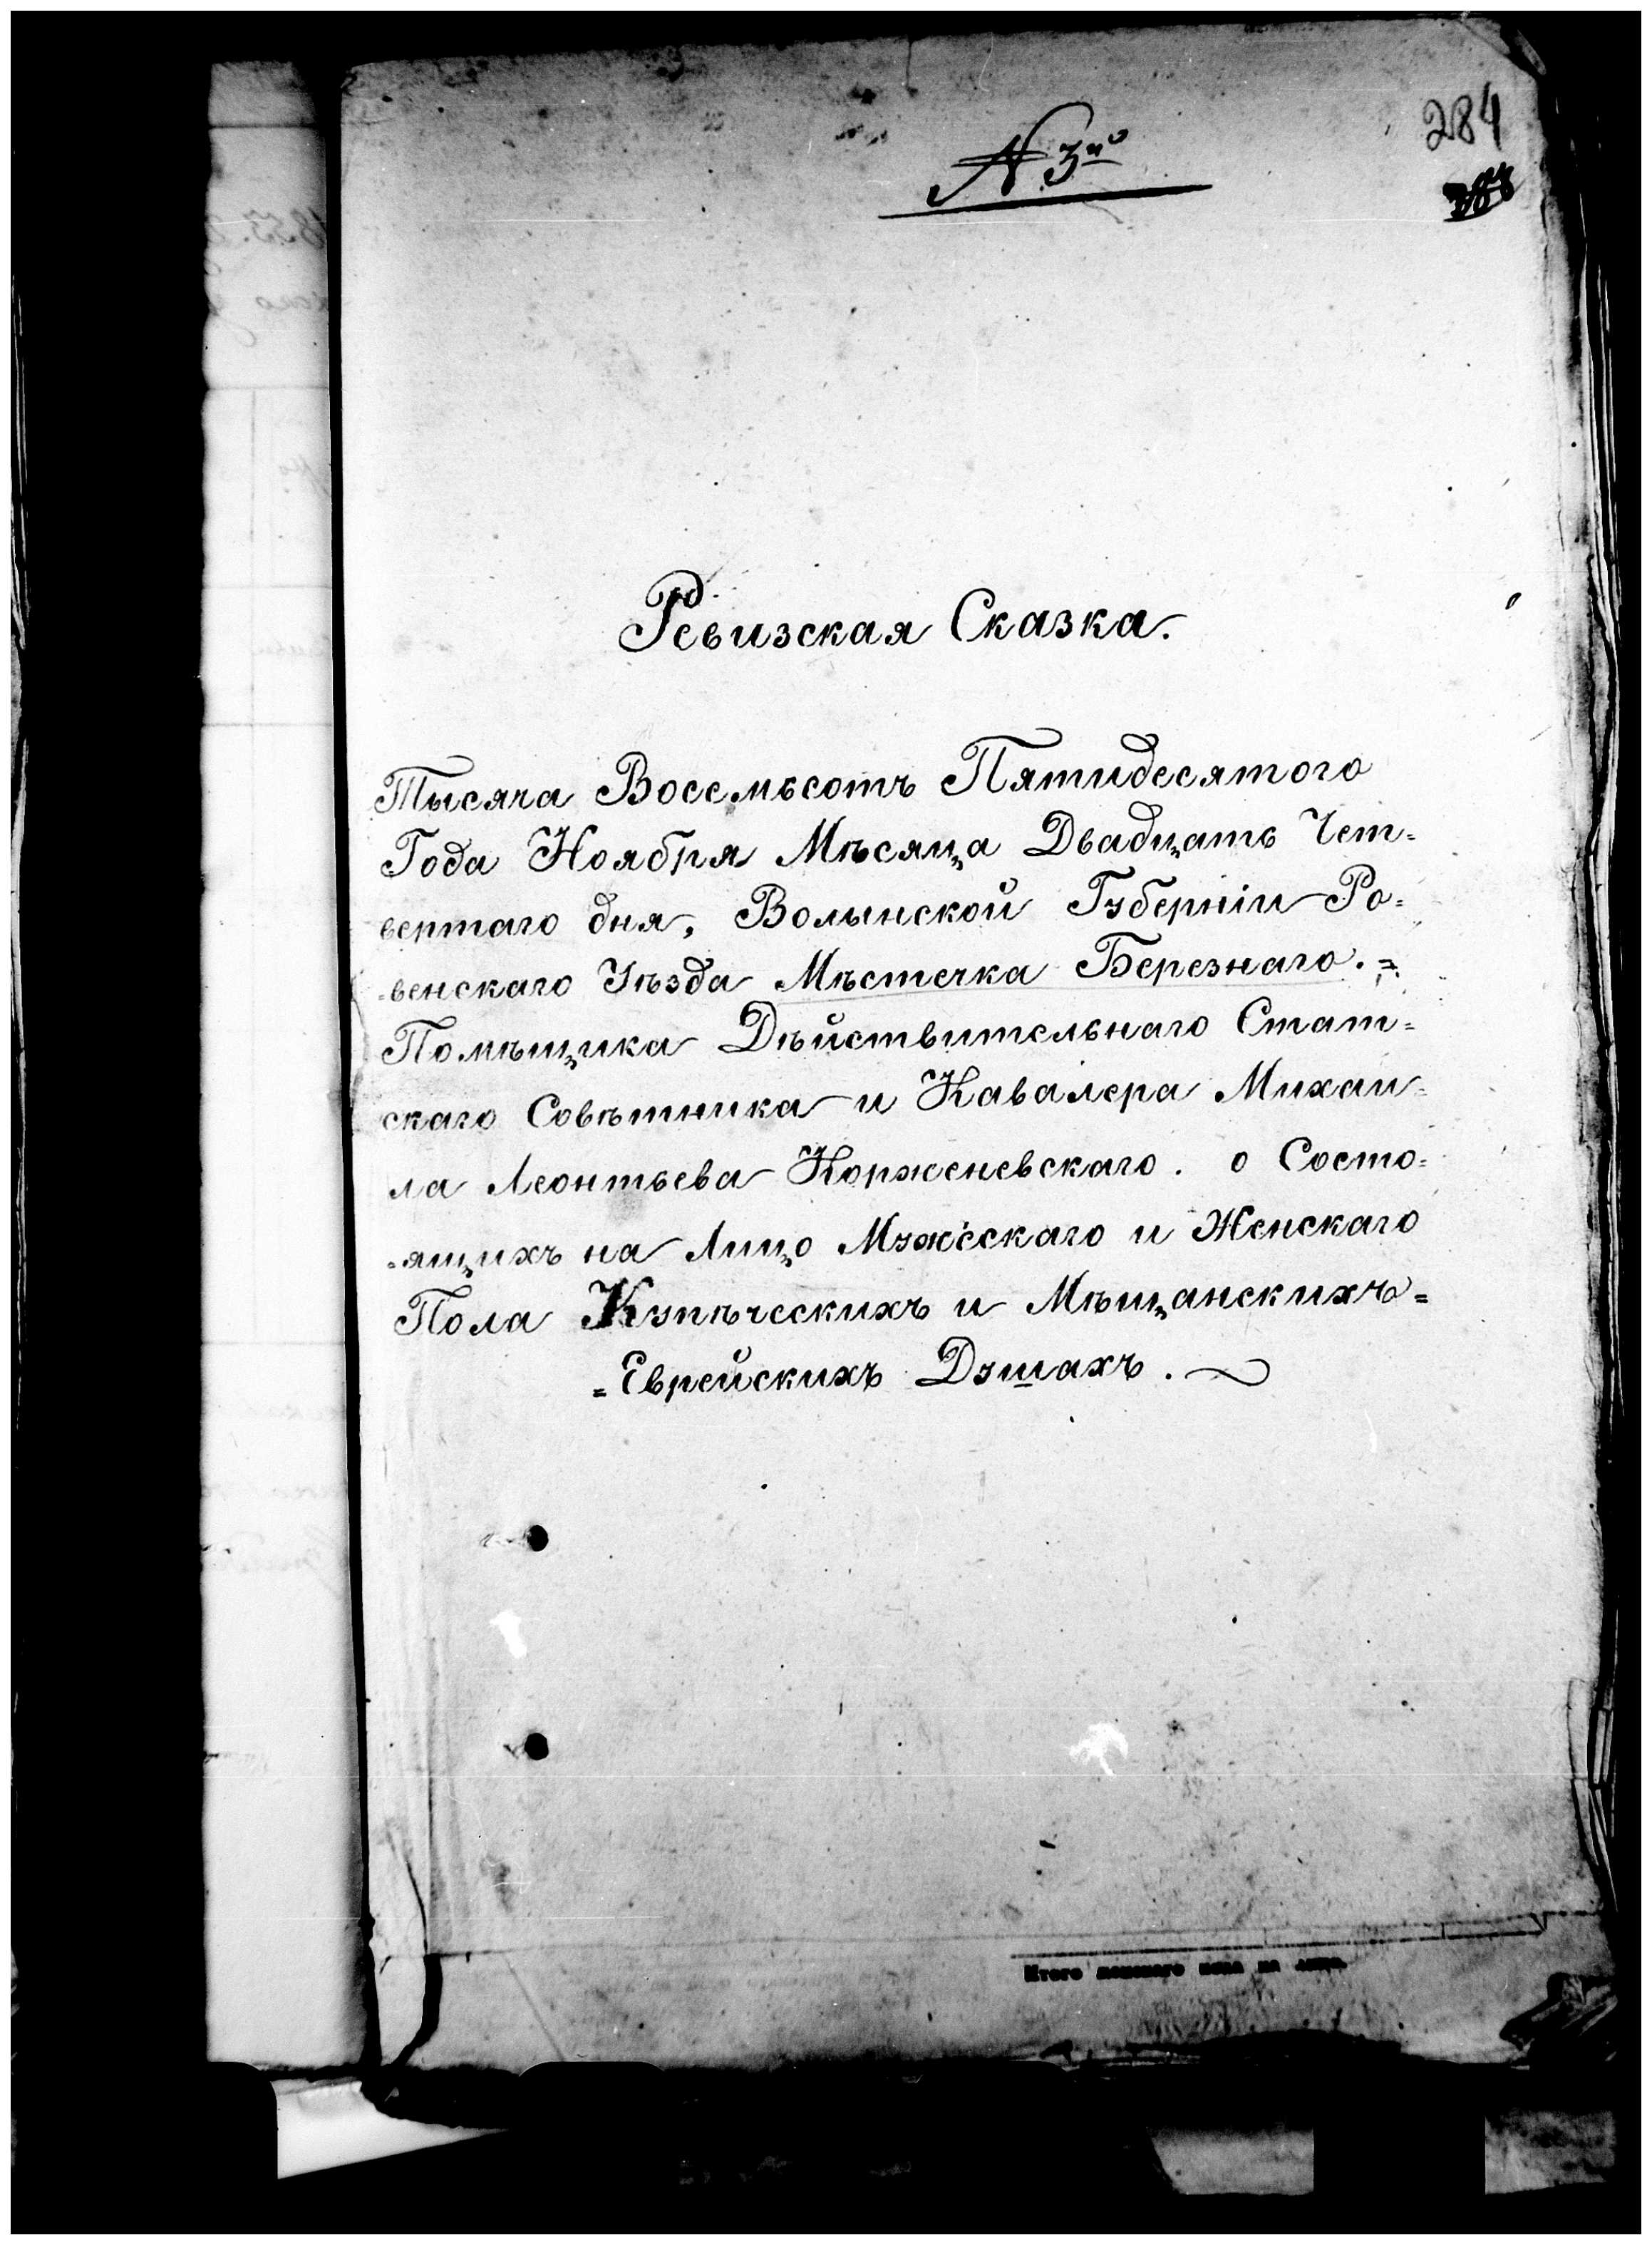 284
N 3й
Ревизская Сказка.
Тысяча Восемьсотъ Пятидесятого
Года Ноября Мѣсяца Двадцать Чет=
вертаго дня, Волынской Губерніи Ро=
=венскаго Уѣзда Мѣстечка Березнаго. =
Помѣщика Дѣйствительнаго Стат=
скаго Совѣтника и Кавалера Михаи=
ла Леонтьева Корженевскаго. о Состо=
=ящихъ на Лицо Мужескаго и Женскаго
Пола Купѣческихъ и Мѣщанскихъ =
= Еврейскихъ Душахъ.
Итого женскаго пола на лицо.